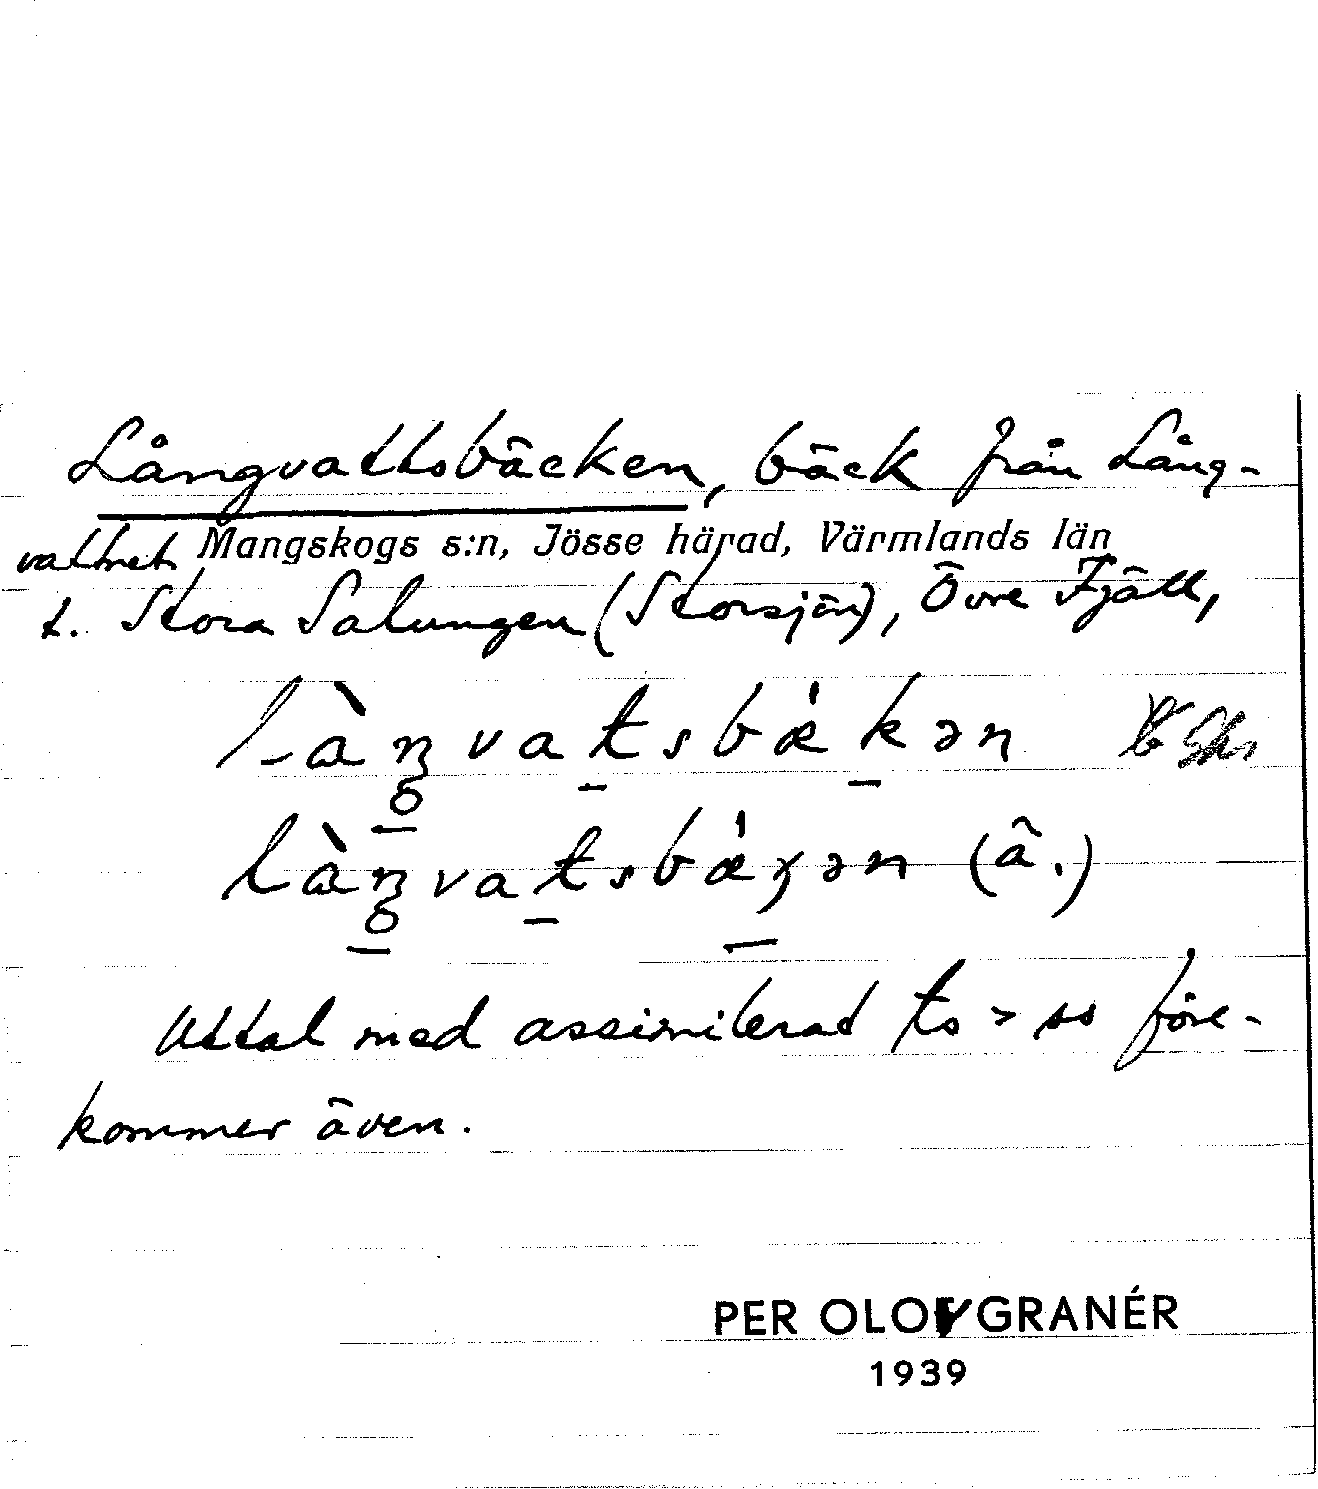 Långvattsbäcken, bäck från Lång-
vattnet
Mangskogs s:n, Jösse härad, Värmlands län
t. Stora Salungen (Storsjön), Övre Fjäll,
làŋvatsbǽkən
làŋvatsbǽꭓən (ä.)
Uttal med assimilerat ts > ss före-
kommer även.
PER OLOV GRANÉR
1939